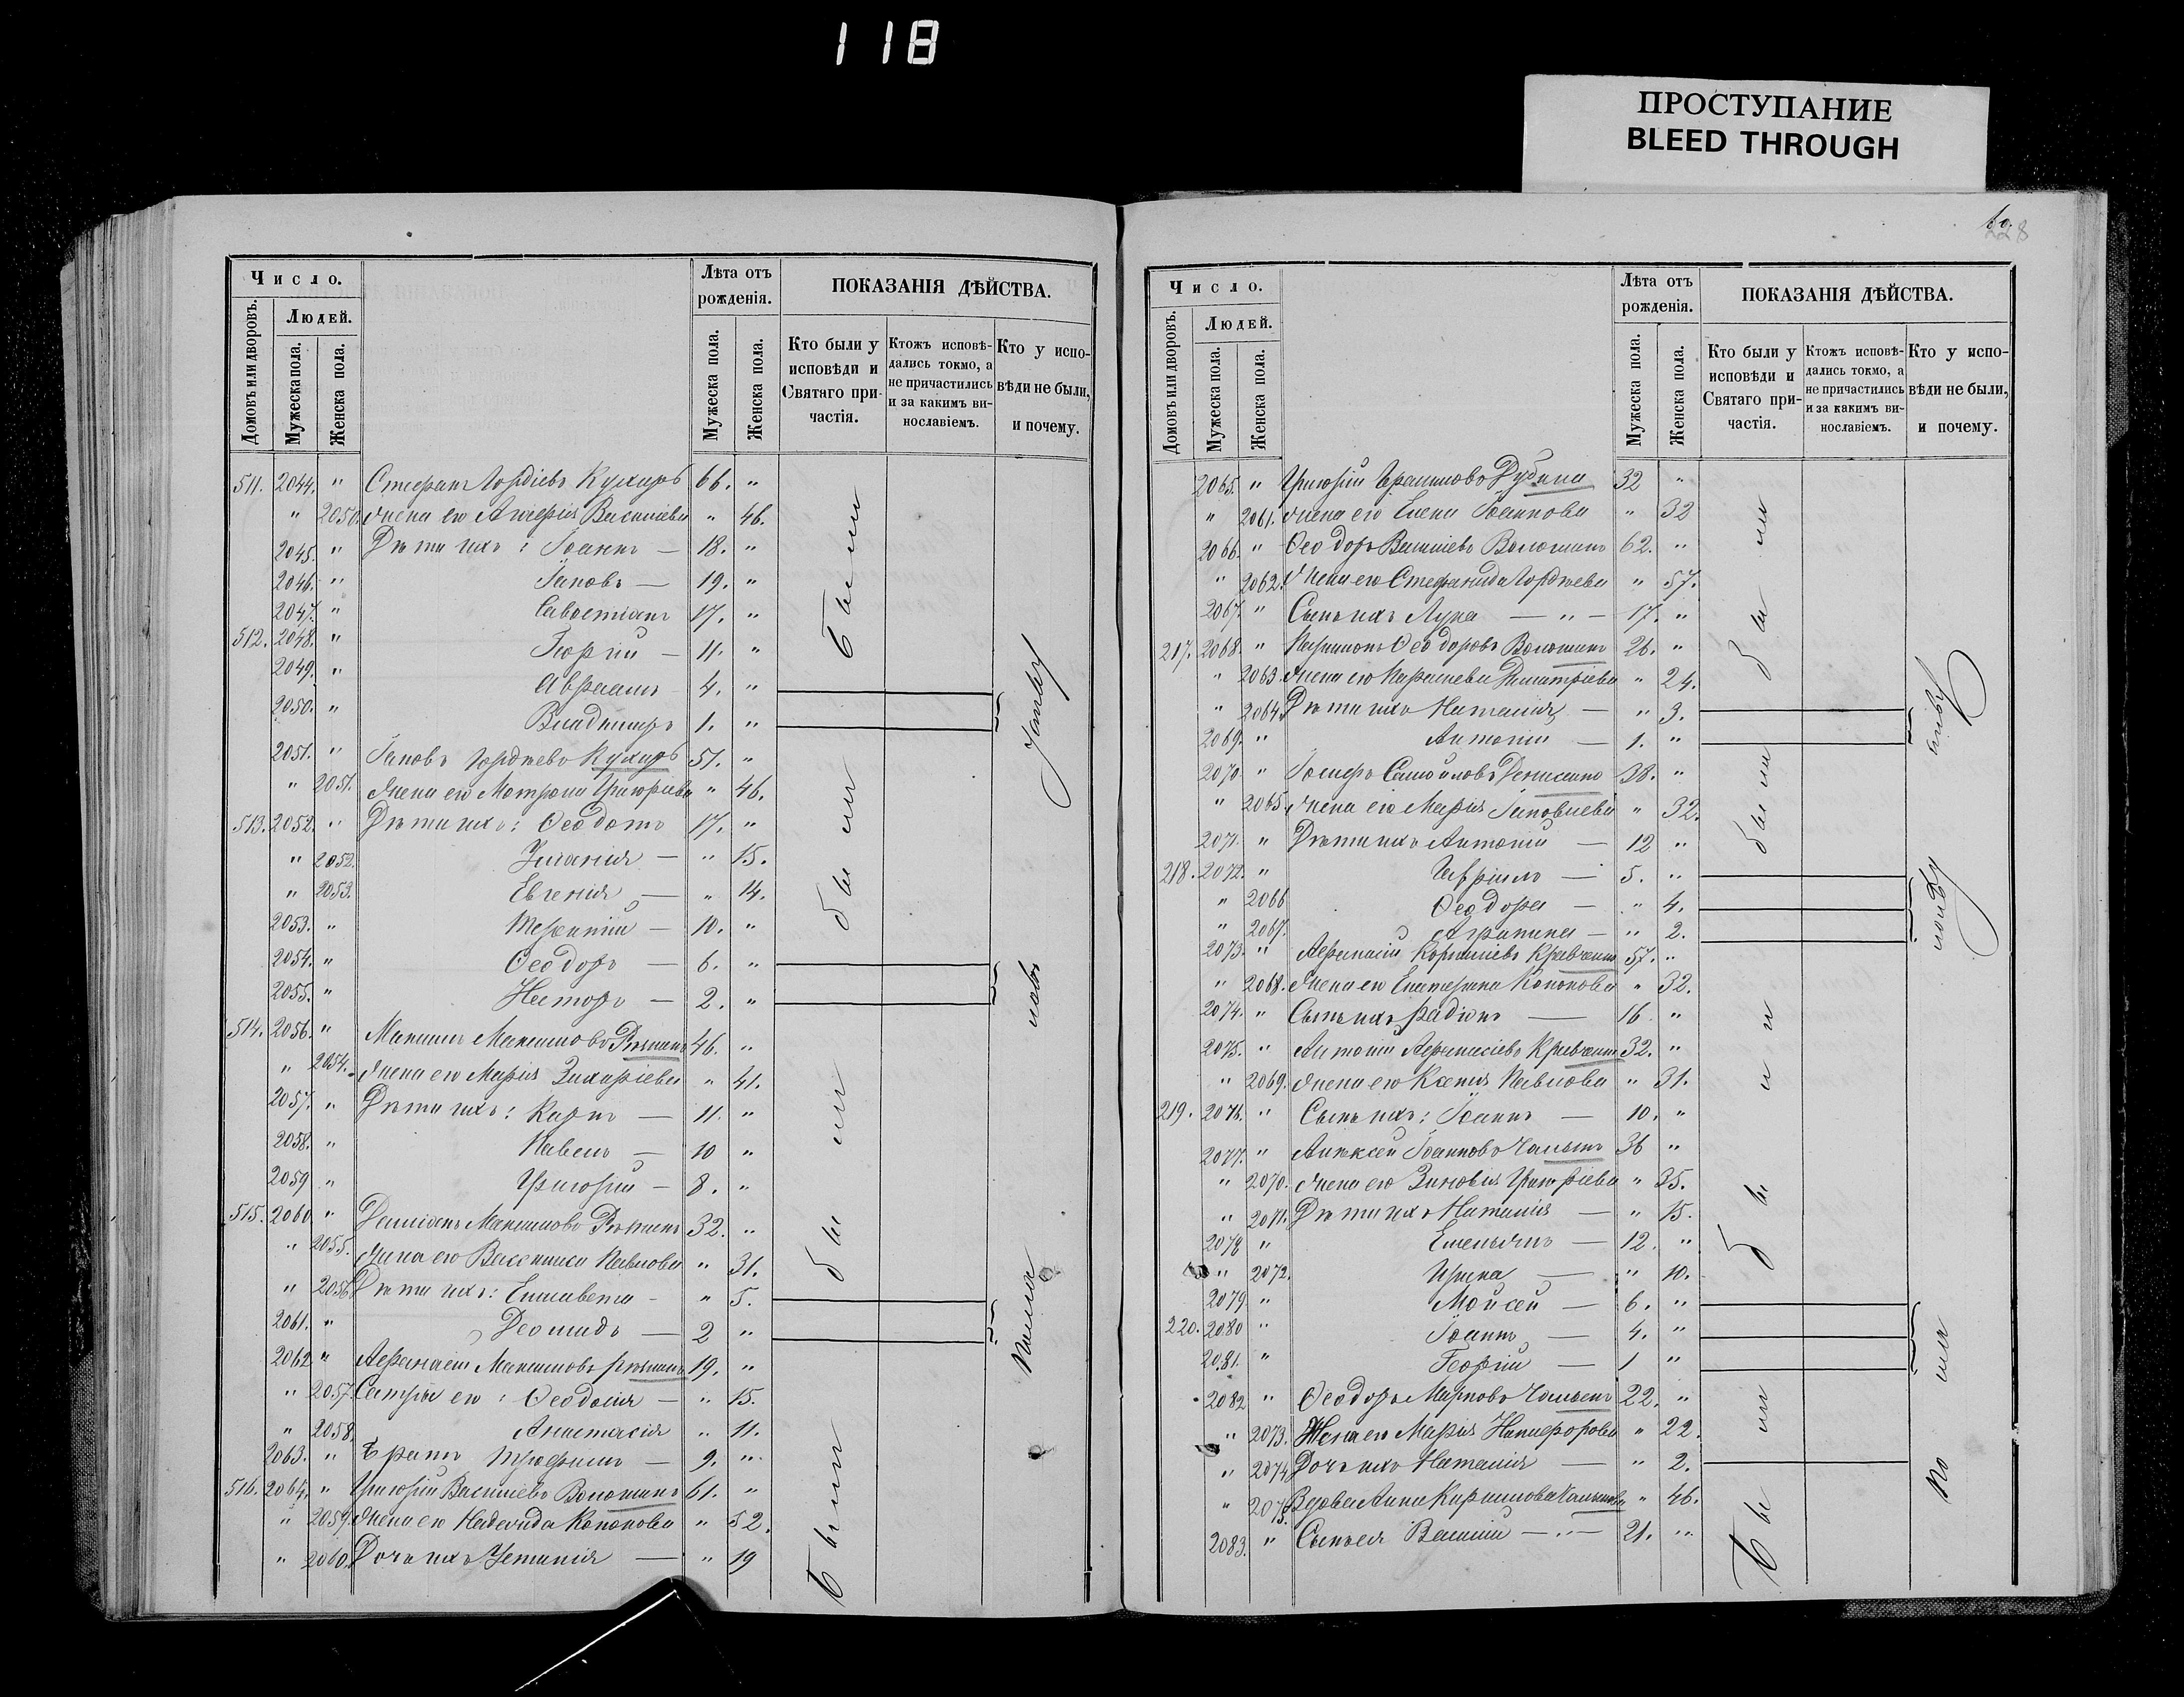 118
ПРОСТУПАНИЕ
BLEED THROUGH
Число.
Домовъ или дворовъ.
Людей.
Мужеска пола.
Женска пола.
Лѣта отъ рожденія.
Мужеска пола.
Женска пола.
ПОКАЗАНІЯ ДѢЙСТВА.
Кто были у исповѣди и Святаго при-
частія.
Ктожъ исповѣ-
дались токмо, а
не причастились
и за какимъ ви-
нославіемъ.
Кто у испо-
вѣди не были,
и почему.
511. 2044. " Стефанъ Гордіевъ Кухарь 66. "
" 2050. Жена его Агафія Василіева " 46.
2045. " Дѣти ихъ: Іоаннъ — 18. "
2046. " Іаковъ — 19. "
2047. " Савостіанъ 17. "
512. 2048. " Георгій — 11. "
2049. " Авраамъ 4. "
2050. " Владимиръ 1. "
2051. " Іаковъ Гордѣевъ Кухарь 51. "
" 2051. Жена его Матрона Григоріева " 46.
513. 2052. " Дѣти ихъ: Ѳеодотъ 17. "
" 2052. Іуліанія — " 15.
" 2053. Евгенія — " 14.
2053. " Терентій — 10. "
2054. " Ѳеодоръ — 6. "
2055. " Несторъ — 2. "
514. 2056. " Максимъ Максимовъ 46. "
" 2054. Жена его Марія Захаріева " 41.
2057. " Дѣти ихъ: Карпъ — 11. "
2058. " Павелъ — 10 "
2059 " Григорій — 8. "
515. 2060. " Даміанъ Максимовъ 32. "
" 2055. Жена его Васси Павлова " 31.
" 2056. Дѣти ихъ: Елисавета - " 5.
2061. " Леонидъ — 2 "
2062. " Афанасій Максимовъ 19. "
" 2057. Сестры его: Ѳеодосія — " 15.
" 2058. Анастасія " 11.
2063. " Братъ Трофимъ — 9. "
516. 2064. " Григорій Василіевъ Волошинъ 61. "
" 2059. Жена его Надежда Кононова " 52.
" 2060. Дочь ихъ — " 19
Были
были
были
Были
По малолѣтству
228
Число.
Домовъ или дворовъ.
Людей.
Мужеска пола.
Женска пола.
Лѣта отъ рожденія.
Мужеска пола.
Женска пола.
ПОКАЗАНІЯ ДѢЙСТВА.
Кто были у исповѣди и Святаго при-
частія.
Ктожъ исповѣ-
дались токмо, а
не причастились
и за какимъ ви-
нославіемъ.
Кто у испо-
вѣди не были,
и почему.
2065. " Григорій Дубина 32 "
" 2061. Жена его Елена Іоаннова " 32
2066. " Ѳеодоръ Василіевъ Волошинъ 62. "
" 2062. Жена его Стефанида Гордѣева " 57.
2067. " Сынъ ихъ Лука — " — 17. "
217. 2068. " Ѳеодоровъ Волошинъ 26. "
" 2063. Жена его Параскева Димитріева " 24.
" 2064. Дѣти ихъ Наталія — " 3.
2069. " Антоній — 1. "
2070. " Іосифъ Самойловъ Денисенко 38. "
" 2065. Жена его Марія Іаковлева " 32.
2071. " Дѣти ихъ Антоній — 12 "
218. 2072. " Гавріилъ — 5. "
" 2066 Ѳеодора — " 4.
" 2067. Агрипина — " 2.
2073. " Афанасій Корниліевъ Кравченко 57. "
" 2068. Жена его Екатерина Кононова " 32.
2074. " Сынъ ихъ Радіонъ — 16. "
2075. " Антоній Афанасіевъ Кравченко 32. "
" 2069. Жена его Ксенія Павлова " 31.
219. 2076. " Сынъ ихъ: Іоаннъ — 10. "
2077. " Алексѣй Іоанновъ 36 "
" 2070. Жена его Зиновія Григоріева " 35.
" 2071. Дѣти ихъ Наталія — " 15.
2078 " Емельянъ — 12. "
" 2072. Ирина — " 10.
2079 " Мойсей — 6. "
220. 2080 " Іоаннъ — 4. "
2081. " Георгій — 1 "
2082 " Ѳеодоръ Марковъ 22. "
" 2073. Жена его Марія Никифорова " 22.
" 2074 Дочь ихъ Наталія — " 2.
" 2075. Вдова Анна Кирилова " 46.
2083. " Сынъ ея Василій — " — 21. "
были
были
были
Были
По малолѣтству